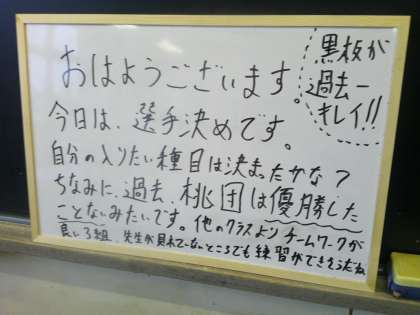 黒板が
過去一
キレイ!!
おはようございます。
今日は、選手決めです。
自分の入りたい種目は決まったかな?
ちなみに、過去、桃団は優勝した
ことないみたいです。他のクラスよりチームワークが
良い3組、先生が見れていないところでも練習ができそうだね